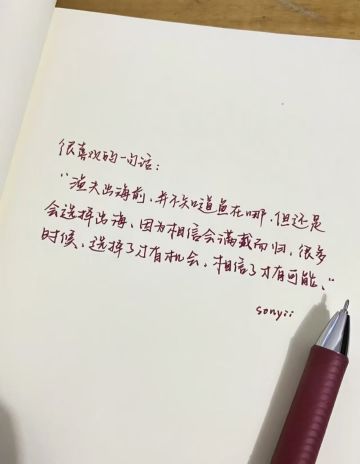 很喜欢的一句话：
“渔夫出海前，并不知道鱼在哪，但还是
会选择出海，因为相信会满载而归，很多
时候，选择了才有机会，相信了才有可能、”
sonyii